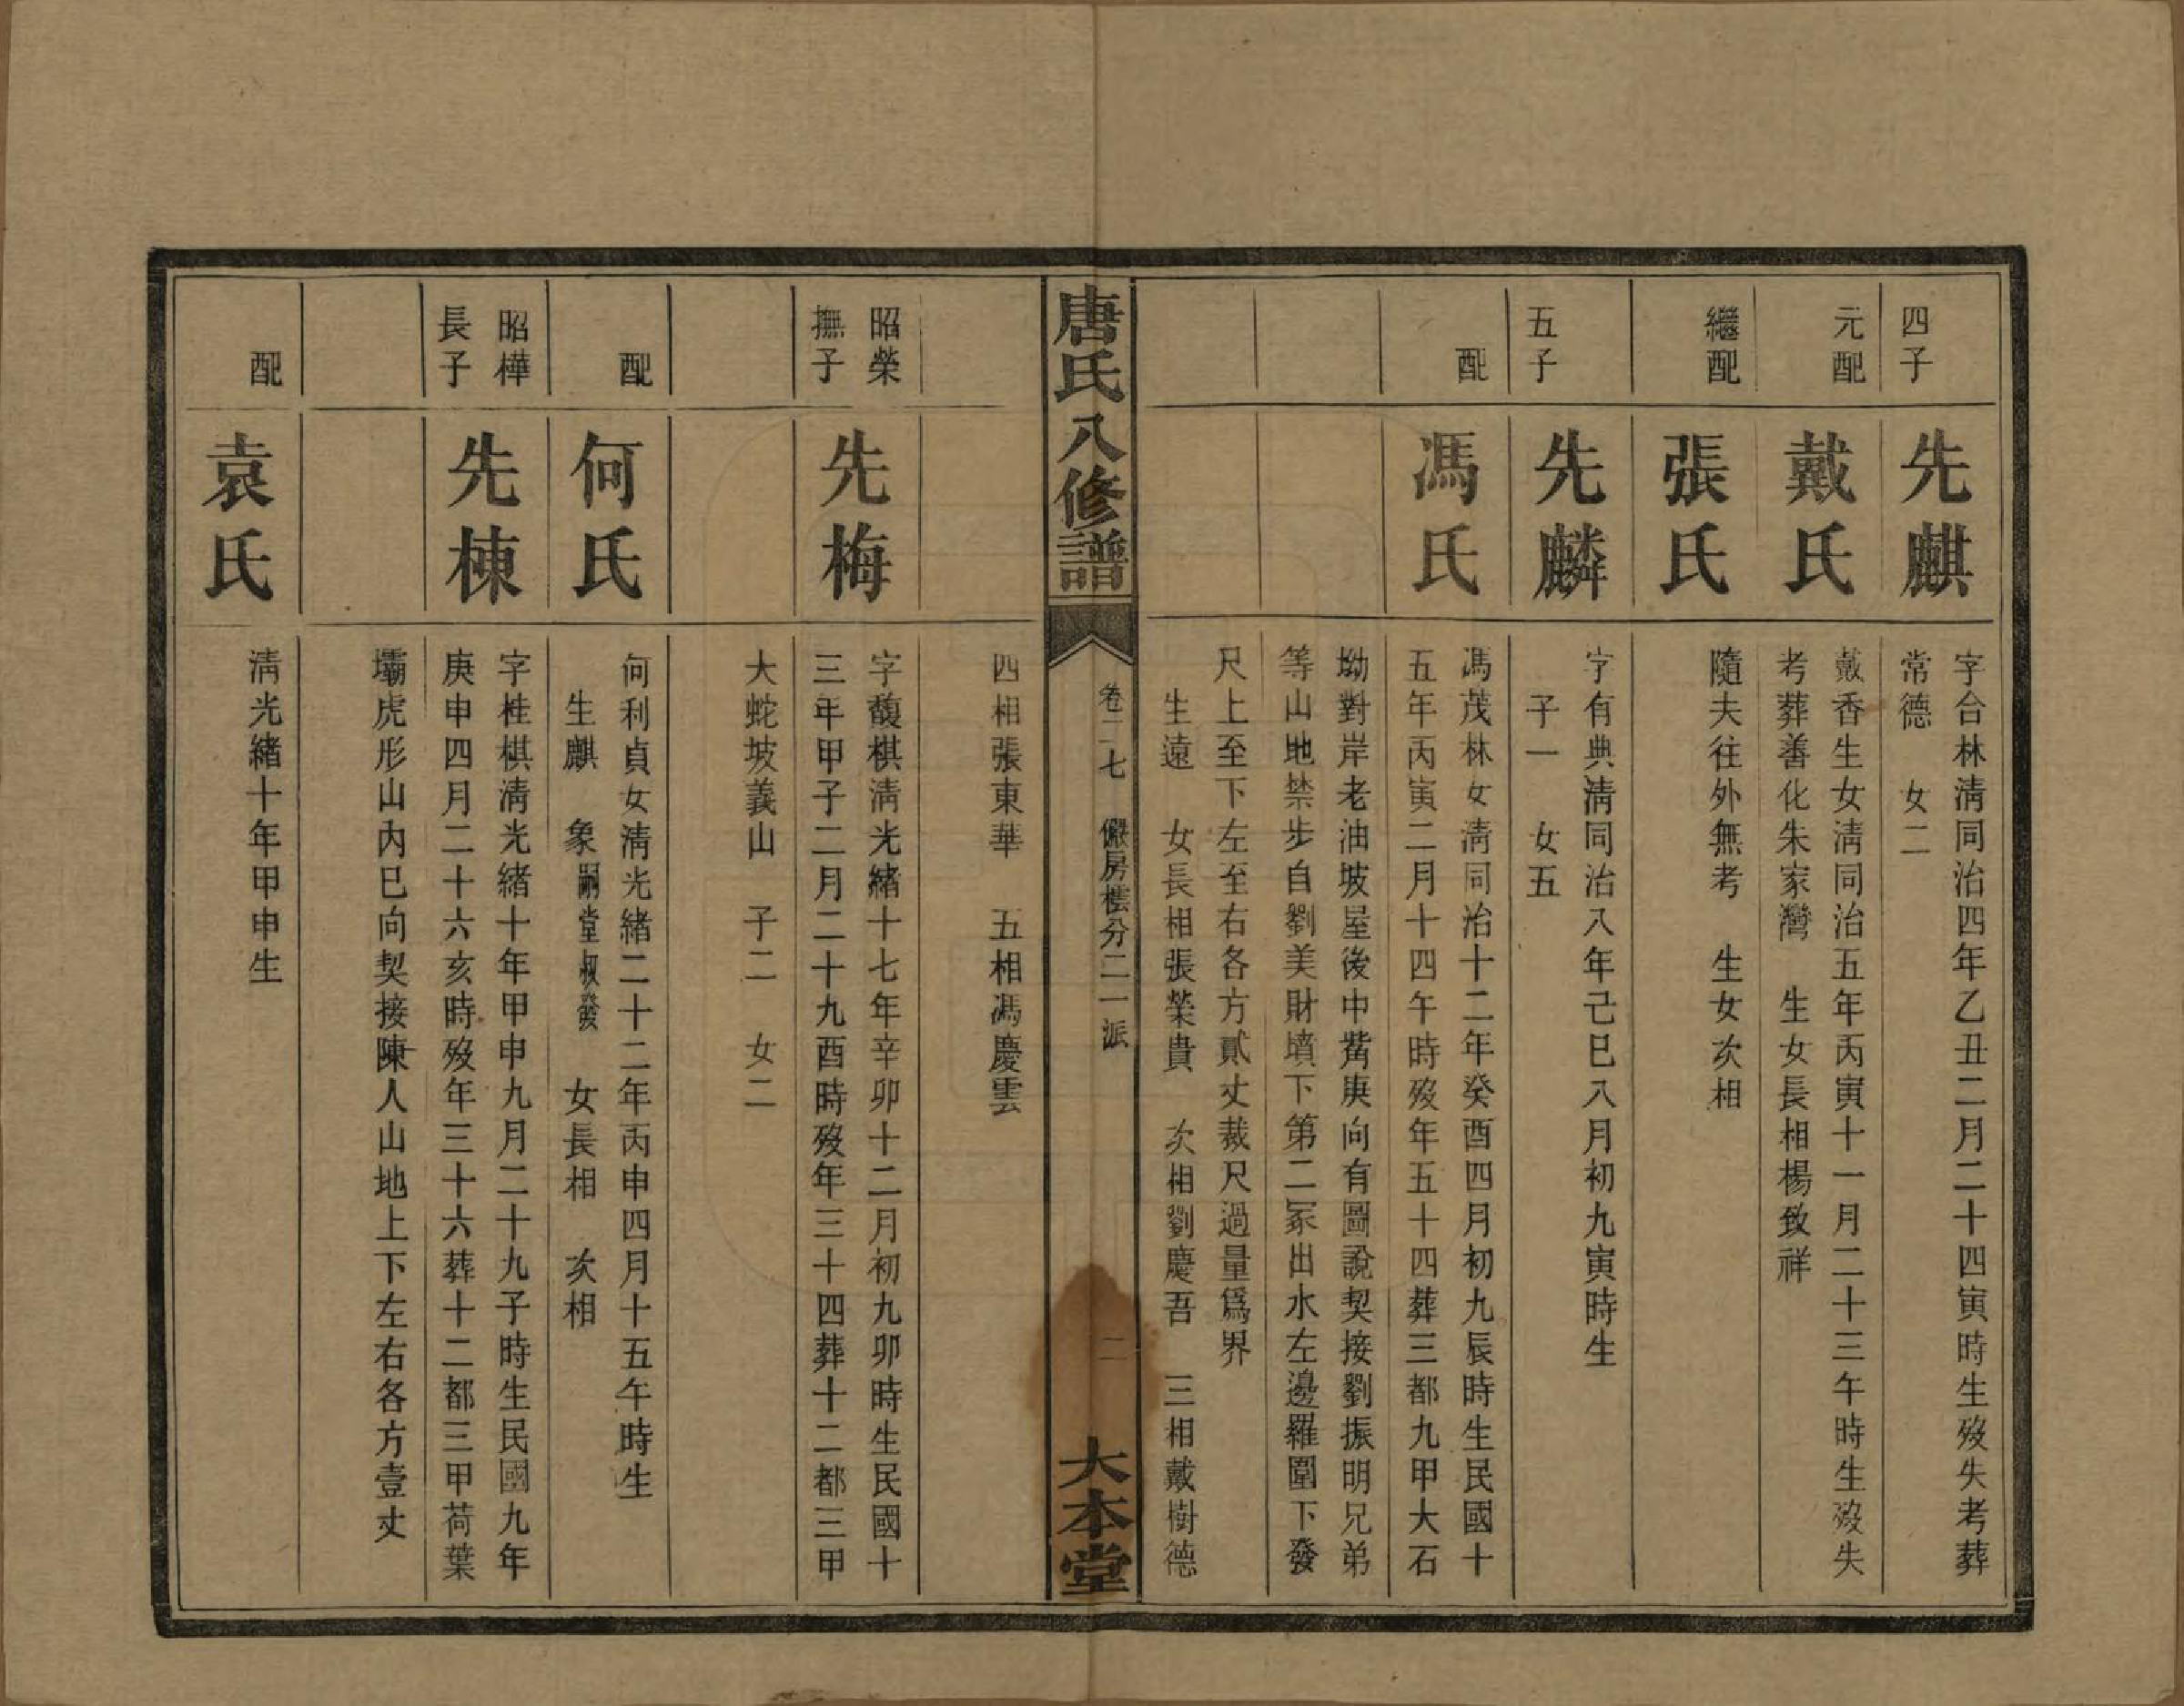 四子
先麒
字合林淸同治四年乙丑二月二十四寅時生歿失考葬
常德　女二
元配
戴氏
戴香生女淸同治五年丙寅十一月二十三午時生歿失
考葬善化朱家灣　生女長相楊致祥
繼配
張氏
隨夫往外無考　生女次相
五子
先麟
字有典淸同治八年己巳八月初九寅時生
子一　女五
配
馮氏
馮茂林女淸同治十二年癸酉四月初九辰時生民國十
五年丙寅二月十四午時歿年五十四葬三都九甲大石
坳對岸老油坡屋後中觜庚向有圖說契接劉振明兄弟
等山地禁步自劉美財墳下第二冢出水左邊羅圍下發
尺上至下左至右各方貳丈裁尺過量爲界
生遠　女長相張榮貴　次相劉慶吾　三相戴樹德
唐氏八修譜
卷二七　儼房樓分二一派
二
大本堂
四相張東華　五相馮慶雲
昭榮
撫子
先梅
字馥棋淸光緒十七年辛卯十二月初九卯時生民國十
三年甲子二月二十九酉時歿年三十四葬十二都三甲
大蛇坡義山　子二　女二
配
何氏
何利貞女淸光緒二十二年丙申四月十五午時生
生麒　象嗣堂叔發　女長相　次相
昭樺
長子
先棟
字桂棋淸光緒十年甲申九月二十九子時生民國九年
庚申四月二十六亥時歿年三十六葬十二都三甲荷葉
壩虎形山內巳向契接陳人山地上下左右各方壹丈
配
袁氏
淸光緒十年甲申生